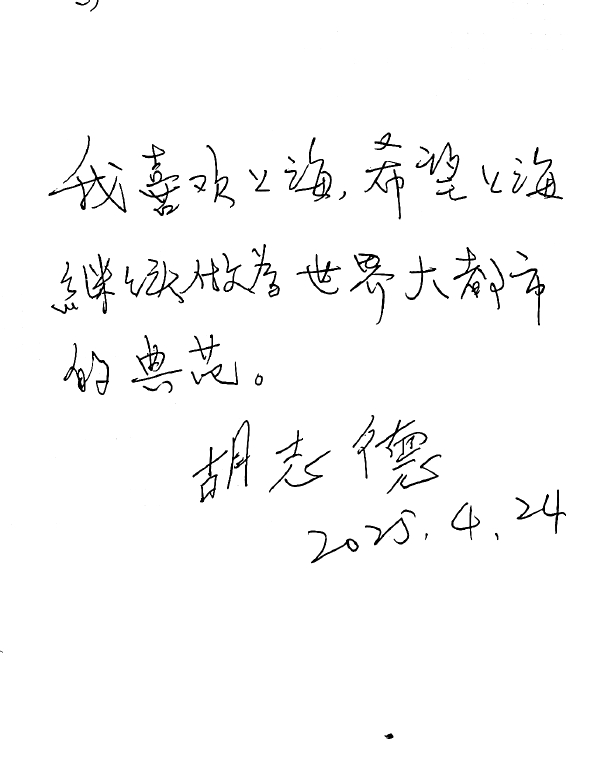 我喜欢上海，希望上海
继续做为世界大都市
的典范。
胡志德
2025.4.24